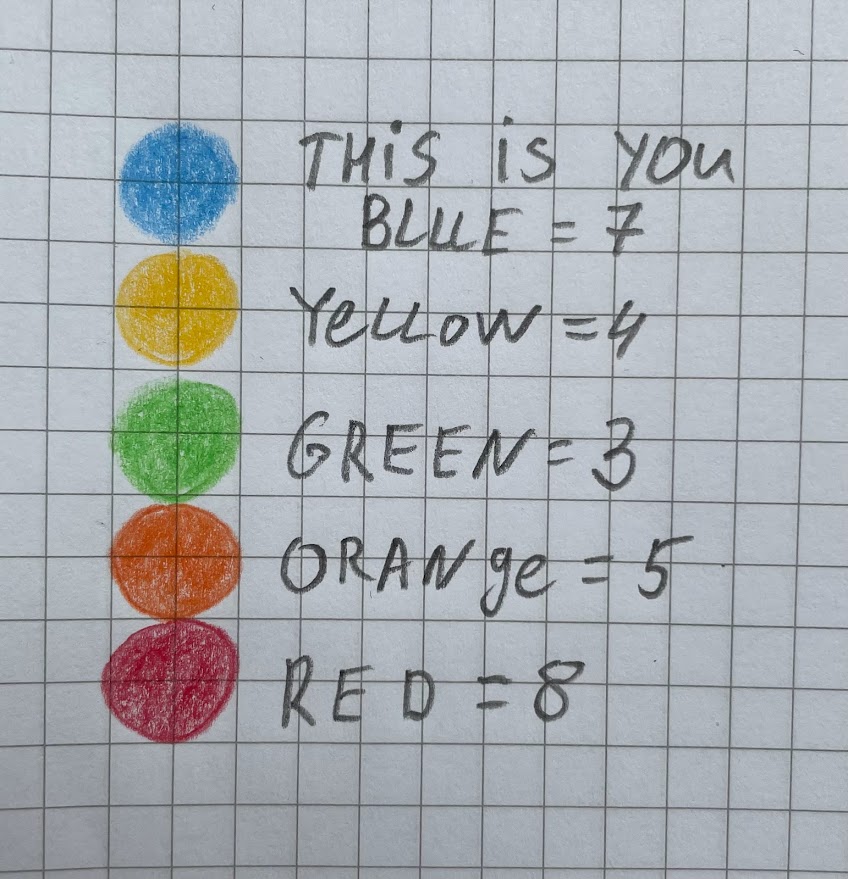 THiS iS YOU
BLUE = 7
YeLLOW = 4
GREEN = 3
ORANge = 5
RED = 8